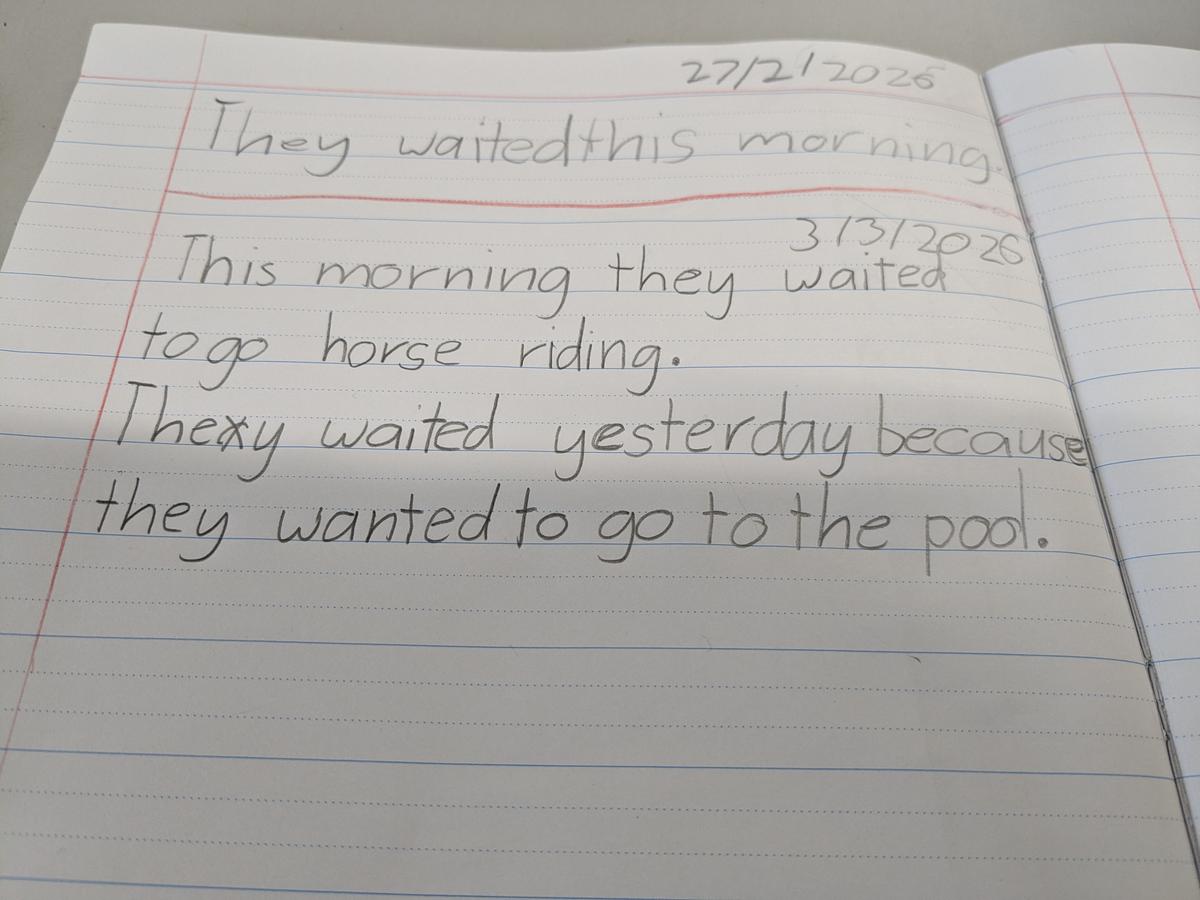 27/2/2026
They waitedthis morning.
3/3/2026
This morning they waited
to go horse riding.
Thexy waited yesterday because
they wanted to go to the pool.